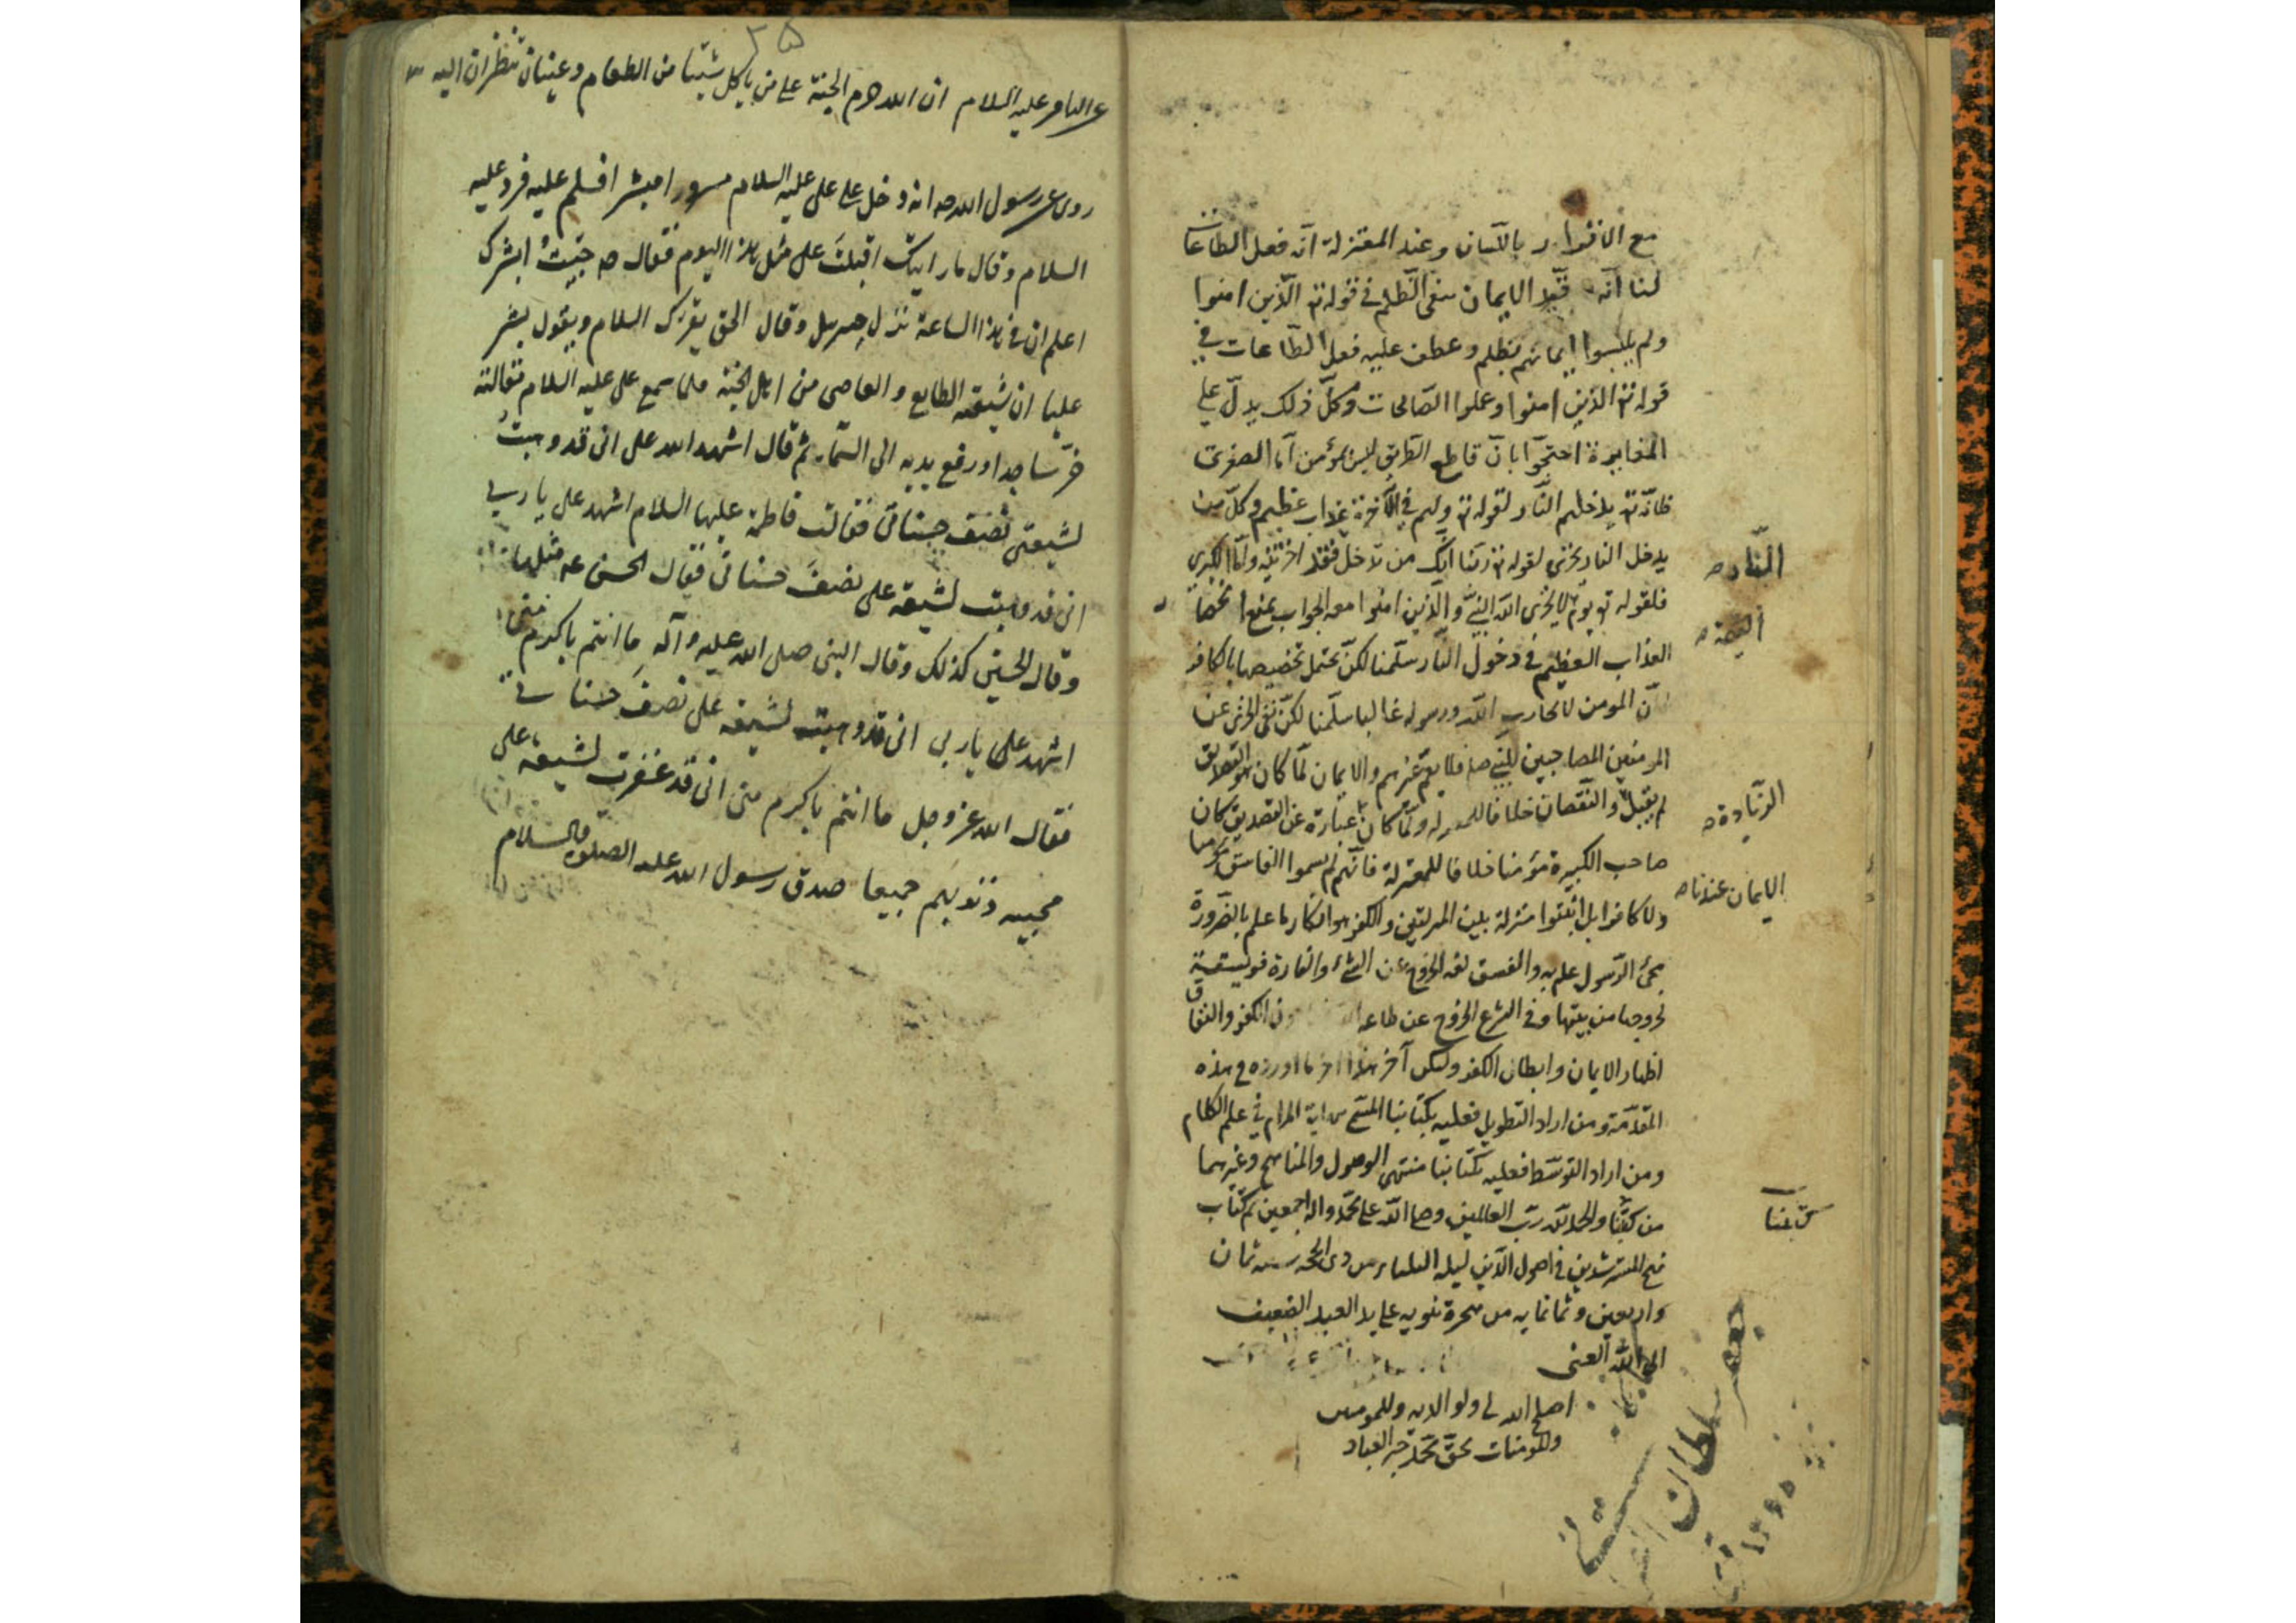 مع الاقرار باللسان وعند المعتزلة انّه فعل الطاعات
لنا انّه قيّد الايمان بنفى الظلم في قوله تع الّذين امنوا
ولم يلبسوا ايمانهم بظلم وعطف عليه فعل الطّاعات في
قوله تع الذين امنوا وعملوا الصّالحات وكلّ ذلك يدلّ على
المغايرة احتجّوا بانّ قاطع الطّريق ليس بمؤمن امّا الصغرى
فانّه تع يدخلهم النّار لقوله تع ولهم في الآخرة عذاب عظيم وكلّ من
يدخل النار يخزى لقوله تع ربّنا انّك من تدخل فقد اخزيته وامّا الكبرى
فلقوله تع يوم لا يخزى اللّه النبيّ والّذين امنوا معه الجواب يمنع انحصار
العذاب العظيم في دخول النّار سلّمنا لكن يحتمل تخصيصها بالكافر
لانّ المومن لا يحارب اللّه ورسوله غالبا سلّمنا لكن نفى الخزى عن
المومنين المصاحبين للنّبي ص فلا يعمّ غيرهم والايمان لمّا كان هو التصديق
لم يقبل والنّقصان خلافا للمعتزلة ولمّا كان عبارة عن التصديق كان
صاحب الكبيرة مؤمنا خلافا للمعتزلة فانّهم لم يسموا الفاسق مؤمنا
ولا كافرا بل اثبتوا منزلة بين المنزلتين والكفر هو انكار ما علم بالضّرورة
مجئ الرّسول عليه به والفسق لغة الخروج عن الشئ والفارة فويسقة
لخروجها من بيتها وفي الشرع الخروج عن طاعة الكفر والنفاق
اظهار الايمان وابطان الكفر وليكن آخر هذا اخر ما اوردناه في هذه
المقدّمة ومن اراد التطويل فعليه بكتابنا المسمّى نهاية المرام في علم الكلام
ومن اراد التوسّط فعليه بكتابنا منتهى الوصول والمناهج وغيرهما
من كتبنا والحمد للّه ربّ العالمين وصلى اللّه على محمّد واله اجمعين تم كتاب
نهج المسترشدين في اصول الدّين ليلة الثلثاء من ذى الحجه سنه ثمان
واربعين وثمانمايه من هجرة نبويه على يد العبد الضعيف
الى اللّه الغنى
اصلح الله له ولوالديه وللمومنين
والمومنات بحقّ محمّد خير العباد
النّار ص
الصّحة
الزّيادة ص
الايمان عندنا ص
كتبنا
جعفر سلطان القرائى
۱۳۶۵
۳۵
عن الباقر عليه السلام ان الله حرم الجنة على من ياكل شيئا من الطعام وعينان تنظران اليه
روى عن رسول الله صه انه دخل على على عليه السلام مسرورا مبشرا فسلم عليه فرد عليه
السلام وقال ما رايتك اقبلت على مثل هذا اليوم فقال صه جئتُ ابشرك
اعلم ان في هذا الساعة نزل جبرئيل وقال الحق يقرئك السلام ويقول بشر
عليا ان شيعته الطايع والعاصى من اهل الجنة فلما سمع على عليه السلام مقالته
خرّ ساجدا ورفع يديه الى السّماء ثم قال اشهد الله على انى قد وهبتُ
لشيعتى نصف حسناتى فقالت فاطمة عليها السلام اشهد على يا ربى
انى قد وهبت لشيعة على نصف حسناتى فقال الحسن عه مثلها
وقال الحسين كذلك وقال النبى صلى الله عليه وآله ما انتم باكرم منى
اشهد على يا ربى انى قد وهبت لشيعة على نصف حسناتى
فقال الله عز وجل ما انتم باكرم منى انى قد غفرت لشيعة على
محبيه ذنوبهم جميعا صدق رسول الله عليه الصلوة والسلام